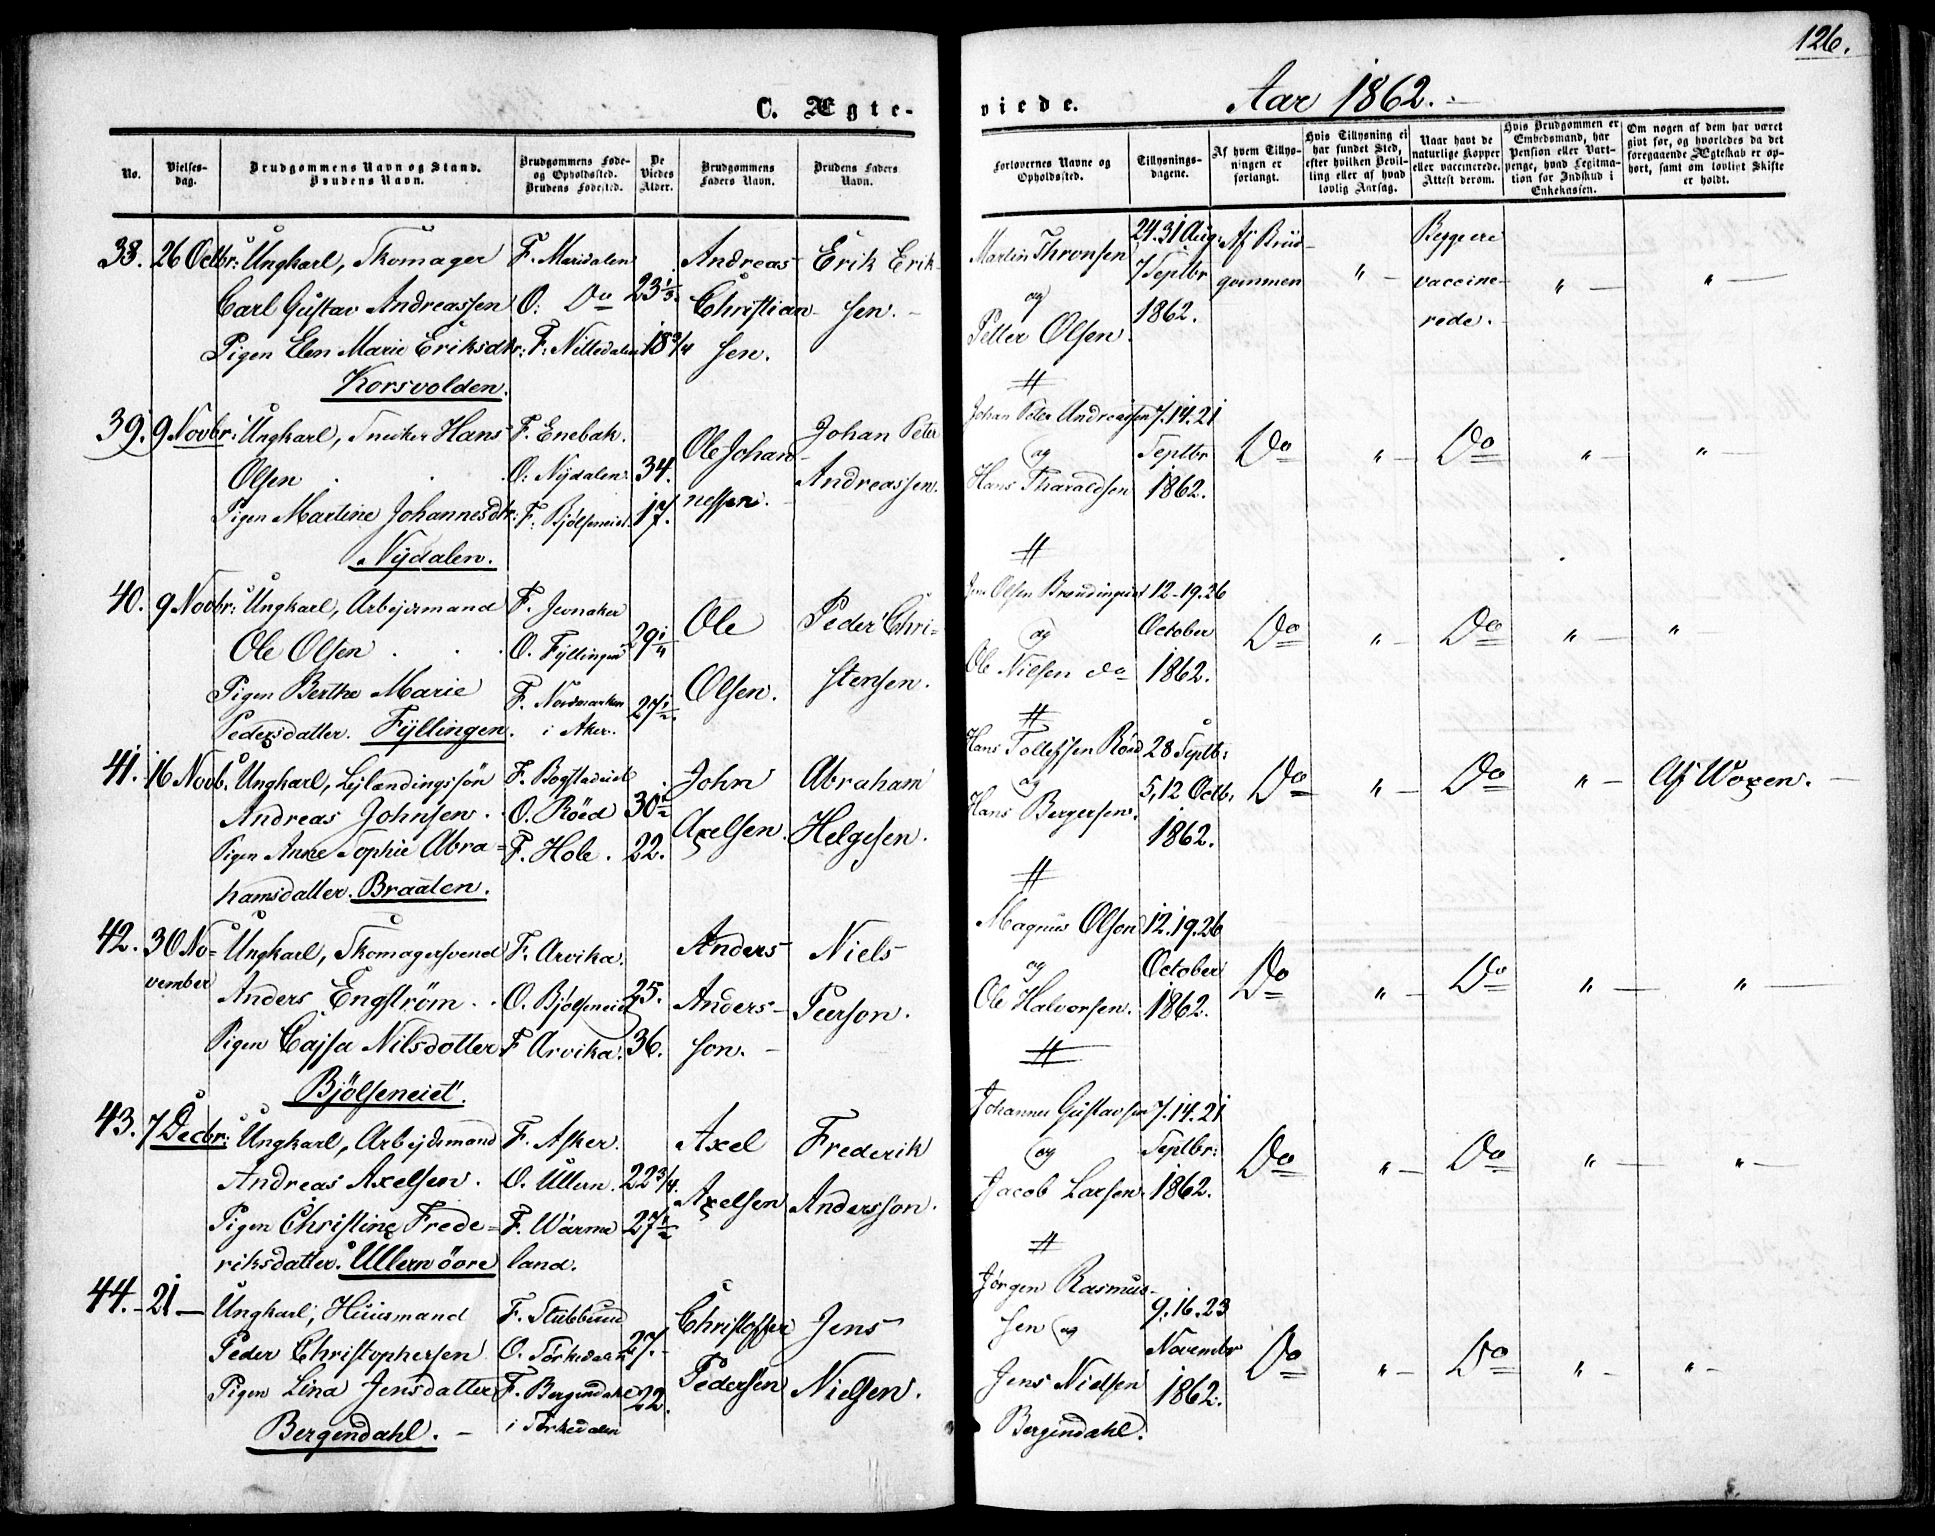 126.
C. Ægte-
viede.
Aar 1862.
No.
Vielses-
dag.
Brudgommens Navn og Stand.
Brudens Navn.
Brudgommens Føde-
og Opholdssted.
Brudens Fødested.
De
Viedes
Alder.
Brudgommens
Faders Navn.
Brudens Faders
Navn.
Forlovernes Navne og
Opholdssted.
Tillysnings-
dagene.
Af hvem Tillys-
ningen er
forlangt.
Hvis Tillysning ei
har fundet Sted,
efter hvilken Bevil-
ling eller af hvad
lovlig Aarsag.
Naar havt de
naturlige Kopper
eller vaccinerede.
Attest derom.
Hvis Brudgommen er
Embedsmand, har
Pension eller Vart-
penge, hvad Legitma-
tion for Indskud i
Enkekassen.
Om nogen af dem har været
givt før, og hvorledes da det
foregaaende Ægteskab er op-
hørt, samt om lovligt Skifte
er holdt.
38. 26 Octbr: Ungkarl, Skomager
Carl Gustav Andreassen
Pigen Elen Marie Eriksdtr:
Korsvolden.
F. Maridalen
O: Do
F: Nittedalen
23 1/3.
18 3/4
Andreas
Christian-
sen.
Erik Erik-
sen.
Martin Thronsen
og
Petter Olsen
24. 31 Aug:
7 Septbr
1862.
Af Brud-
gommen
"
Begge ere
vaccine-
rede.
"
"
39. 9 Novbr: Ungkarl, Snecker Hans
Olsen
Pigen Martine Johannesdtr:
Nydalen.
F. Enebak.
O: Nydalen.
F: Bjølseneiet.
34.
17.
Ole Johan-
nessen.
Johan Peter
Andreassen.
Johan Peter Andreassen
og
Hans Tharaldsen
7. 14. 21
Septbr
1862.
Do
"
Do
"
"
40. 9 Novbr: Ungkarl, Arbejdsmand
Ole Olsen
Pigen Berthe Marie
Pedersdatter. Fyllingen.
F. Jevnaker
O. Fyllingen
F. Nordmarken
i Aker.
29 1/4
27 1/2.
Ole
Olsen.
Peder Chri-
stensen.
og
Ole Nielsen do
12-19.26
October
1862.
Do
"
Do
"
"
41. 16 Novb. Ungkarl, Lejlændingssøn
Andreas Johnsen.
Pigen Anne Sophie Abra-
hamsdatter. Braaten.
F. Bogstadeiet
O. Röed
F. Hole.
30 1/2
22.
John
Axelsen.
Abraham
Helgesen.
Hans Tollefsen Röed
og
Hans Bergersen.
28 Septb:
5, 12 Octb.
1862.
Do
"
Do
"
Af Woxen.
42. 30 No-
vember
Ungkarl, Skomagersvend
Anders Engström.
Pigen Cajsa Nilsdotter
Bjölseneiet.
F. Arvika.
O. Bjölseneiet
F Arvika.
25.
36.
Anders
Anders-
son.
Niels
Peerson.
Magnus Olson
og
Ole Halvorsen.
12. 19. 26
October
1862.
Do
"
Do
"
"
43. 7 Decbr: Ungkarl, Arbejdsmand
Andreas Axelsen.
Pigen Christine Frede-
riksdatter. Ullern övre
F. Asker.
O. Ullern.
F. Wärme
land.
22 3/4.
27 1/2
Axel
Axelsen
Frederik
Andersson.
Johannes Gustavsen
og
Jacob Larsen.
7. 14. 21
Septbr:
1862.
Do
"
Do
"
"
44. 21 Ungkarl, Huusmand
Peder Christophersen
Pigen Lina Jensdatter
Bergendahl.
F. Stubbsund
O. Sörkedalen
F. Bergendahl
i Sörkedalen
27.
22.
Christoffer
Pedersen
Jens
Nielsen.
Jørgen Rasmus-
sen og
Jens Nielsen
Bergendahl.
9. 16. 23
Novembr
1862.
Do
"
Do
"
"